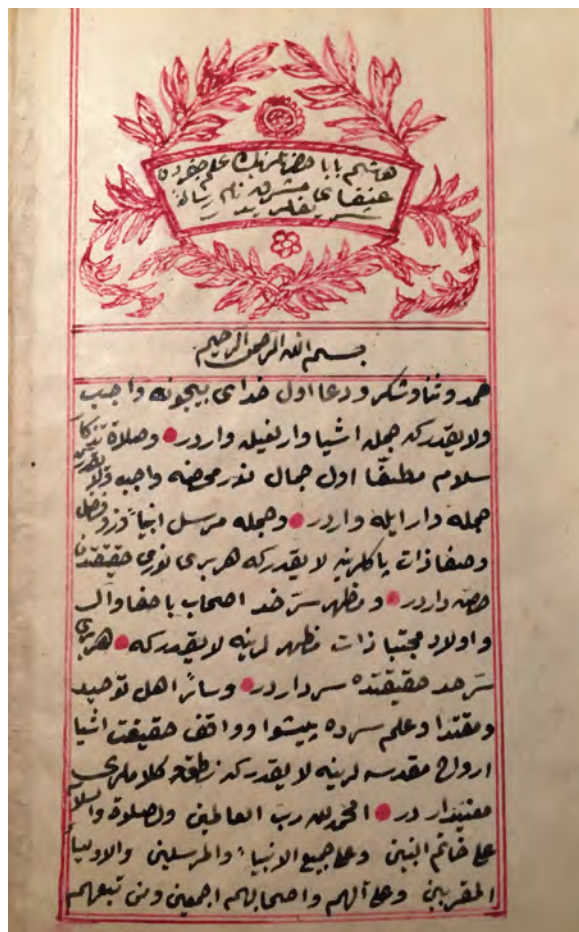 هاشم بابا حضرتلرينك علم جفردن
عنقاى مشرق نام رسالۀ
شريفلريدر
بسم الله الرحمن الرحيم
حمد وثنا وشكر ودعا اول خداى بيچونه واجب
ولايقدركه جمله اشيا وارلغيله واردر وصلاة
سلام مطبقا اول جمال نور محضه واجب ولايقدركه
جمله وار ايله واردر وجمله مرسل انبيا
وصفاذات پاكلرينه لايقدركه هر برى نور حقيقتدن
حصه داردر ومظهر سرّ خدا اصحاب باصفا وآل
واولاد مجتبا ذات مظهر لرينه لايقدركه هر برى
سرّ حد حقيقتده سرداردر وسائر اهل توحيد
ومقتدا وعلم سرده پيشوا وواقف حقيقت اشيا
ارواح مقدسه لرينه لايقدركه نطق وكلاملرى
معنيدار در الحمد لله رب العالمين ولصلوة والسلام
على خاتم النبين وعلى جميع الانبياء والمرسلين والاولياء
المقربين وعلى آلهم واصحابهم اجمعين ومن تبعهم